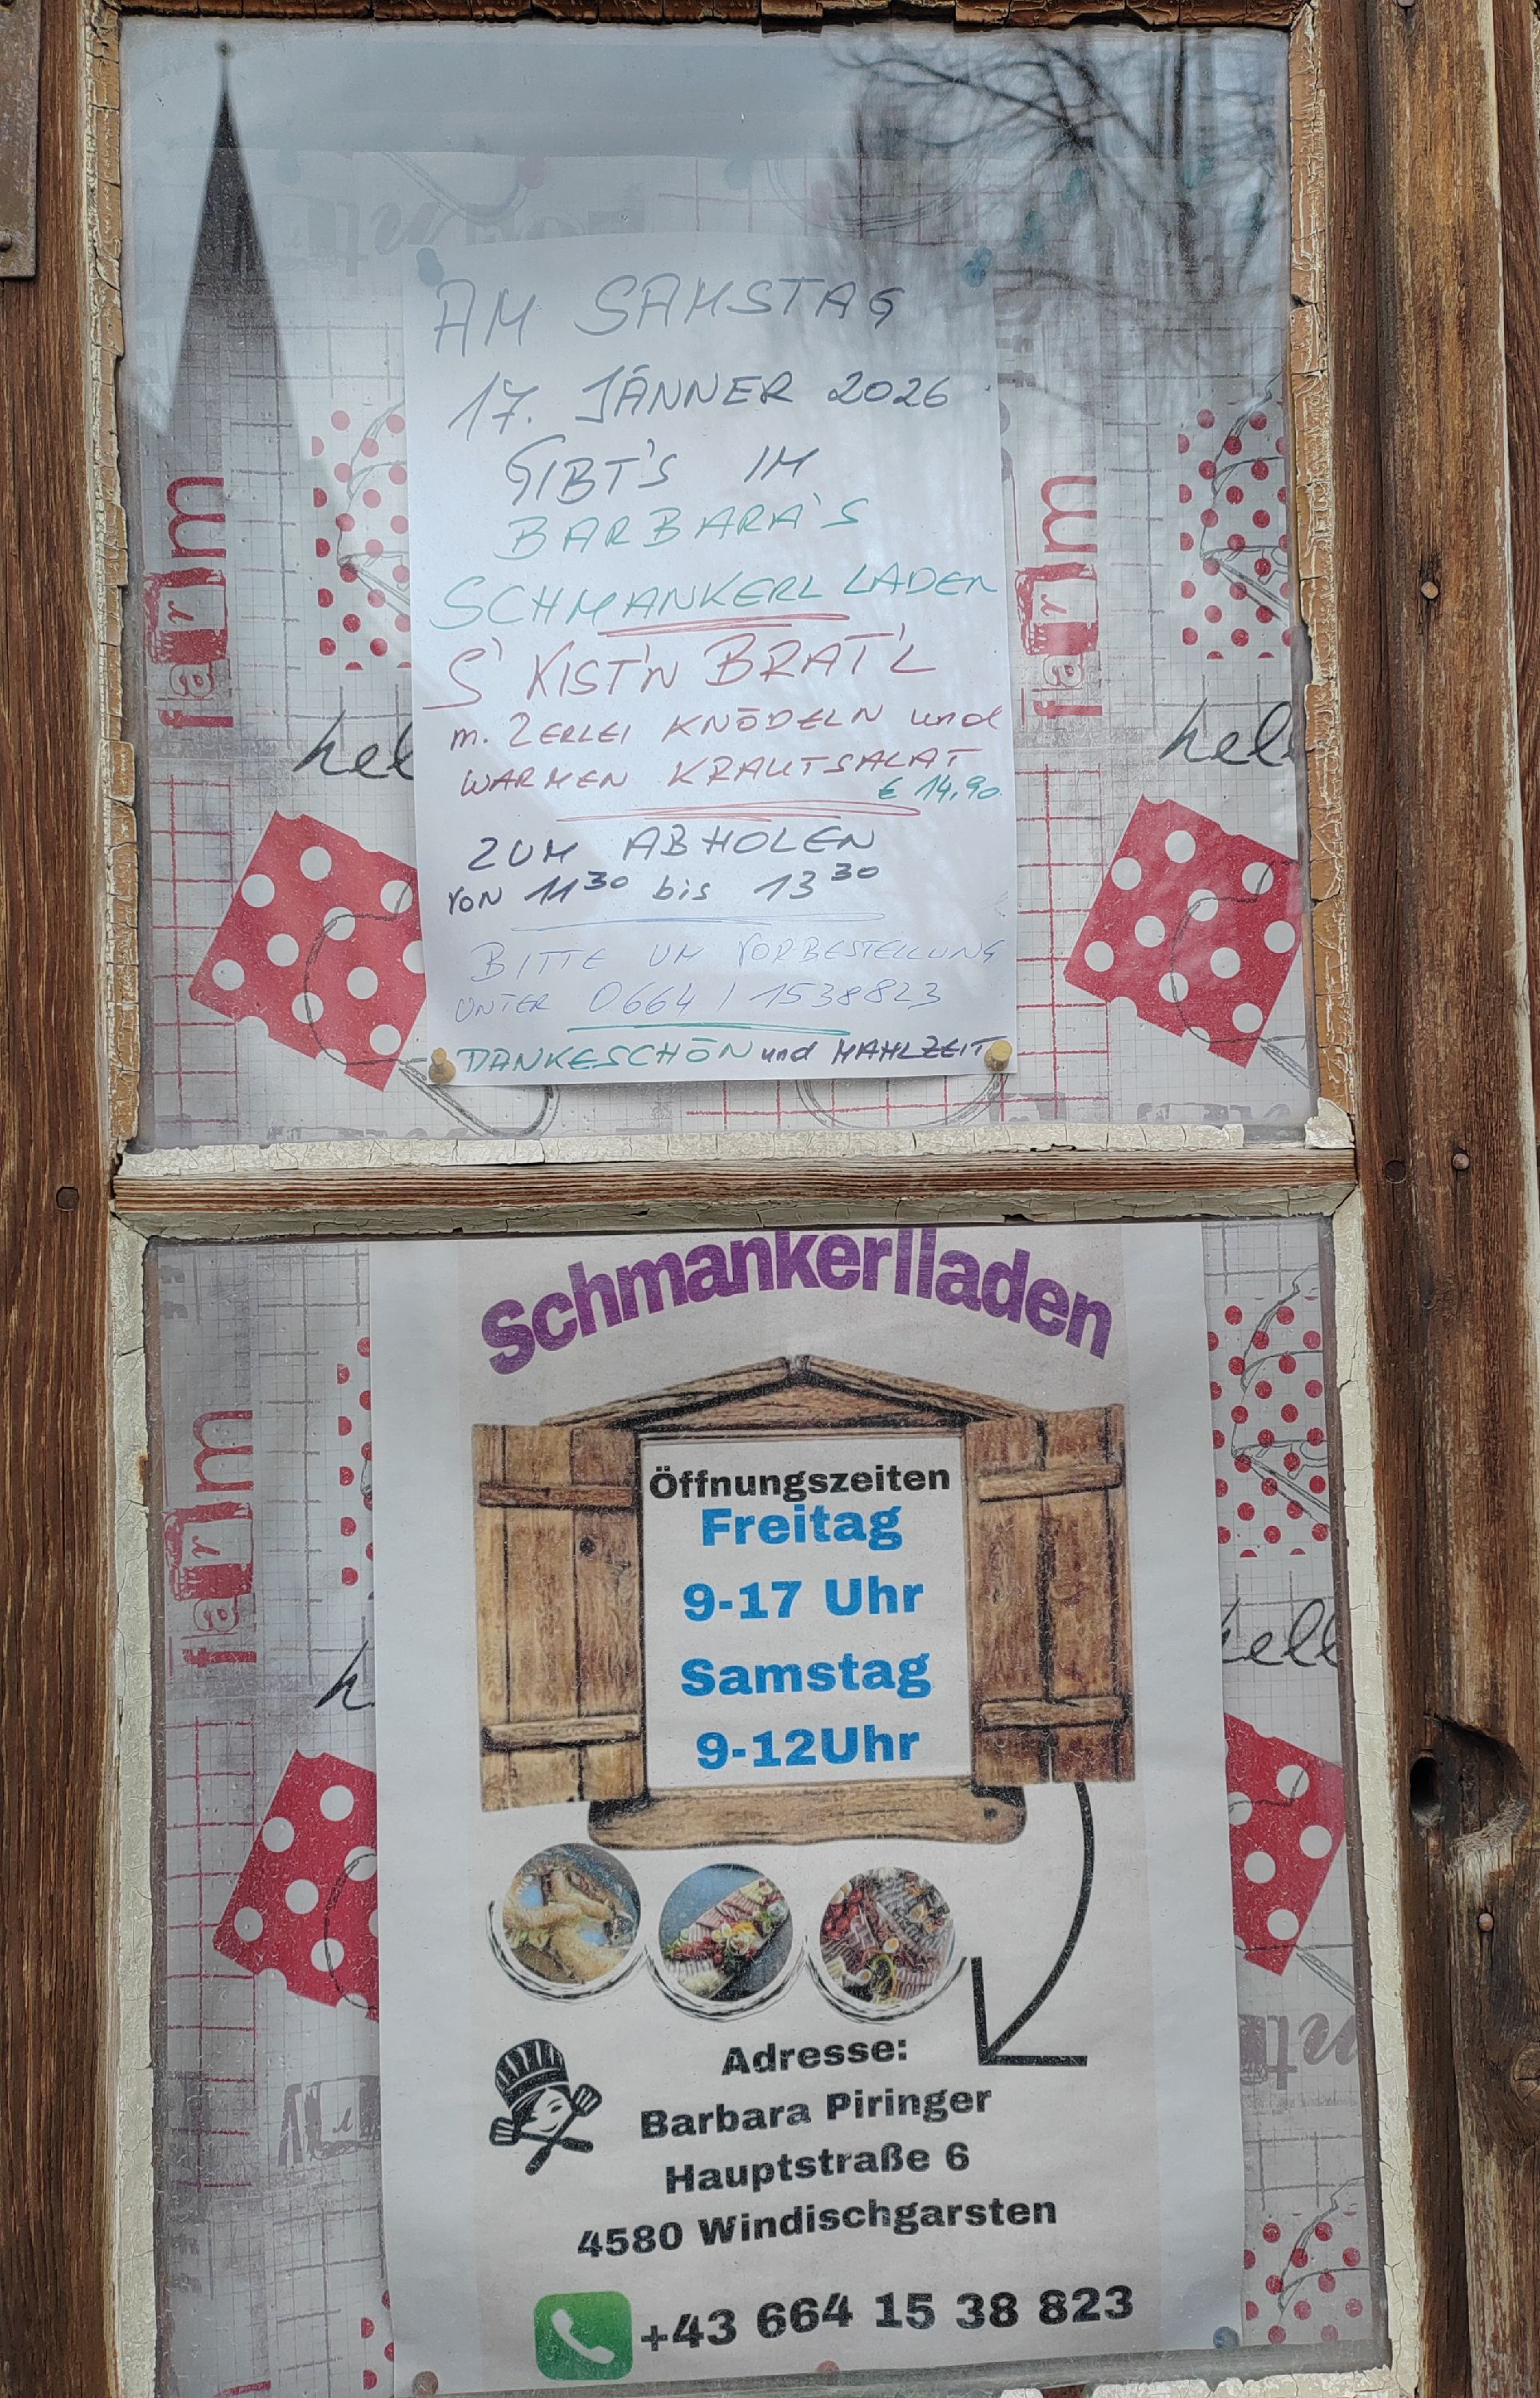 AM SAMSTAG
17. JÄNNER 2026
GIBT'S IM
BARBARA'S
SCHMANKERL LADEN
S' KIST'N BRAT'L
m. 2ERLEI KNÖDELN und
WARMEN KRAUTSALAT
€ 14,90
ZUM ABHOLEN
VON 11³⁰ bis 13³⁰
BITTE UM VORBESTELLUNG
UNTER 0664 / 1538823
DANKESCHÖN und MAHLZEIT
farm
farm
hel
hel
Schmankerlladen
Öffnungszeiten
Freitag
9-17 Uhr
Samstag
9-12Uhr
Adresse:
Barbara Piringer
Hauptstraße 6
4580 Windischgarsten
+43 664 15 38 823
farm
h
hell